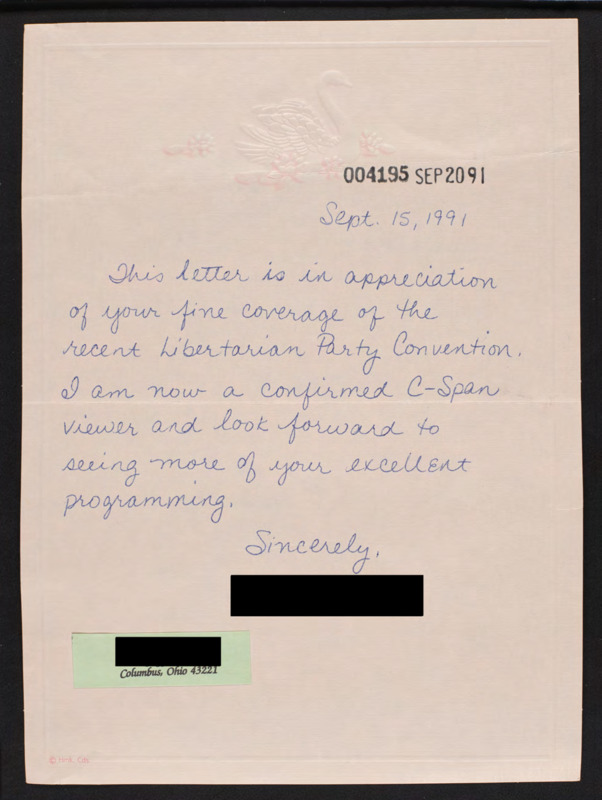 004195 SEP2091
Sept. 15, 1991
This letter is in appreciation
of your fine coverage of the
recent Libertarian Party Convention.
I am now a confirmed C-Span
viewer and look forward to
seeing more of your excellent
programming.
Sincerely,
Columbus, Ohio 43221